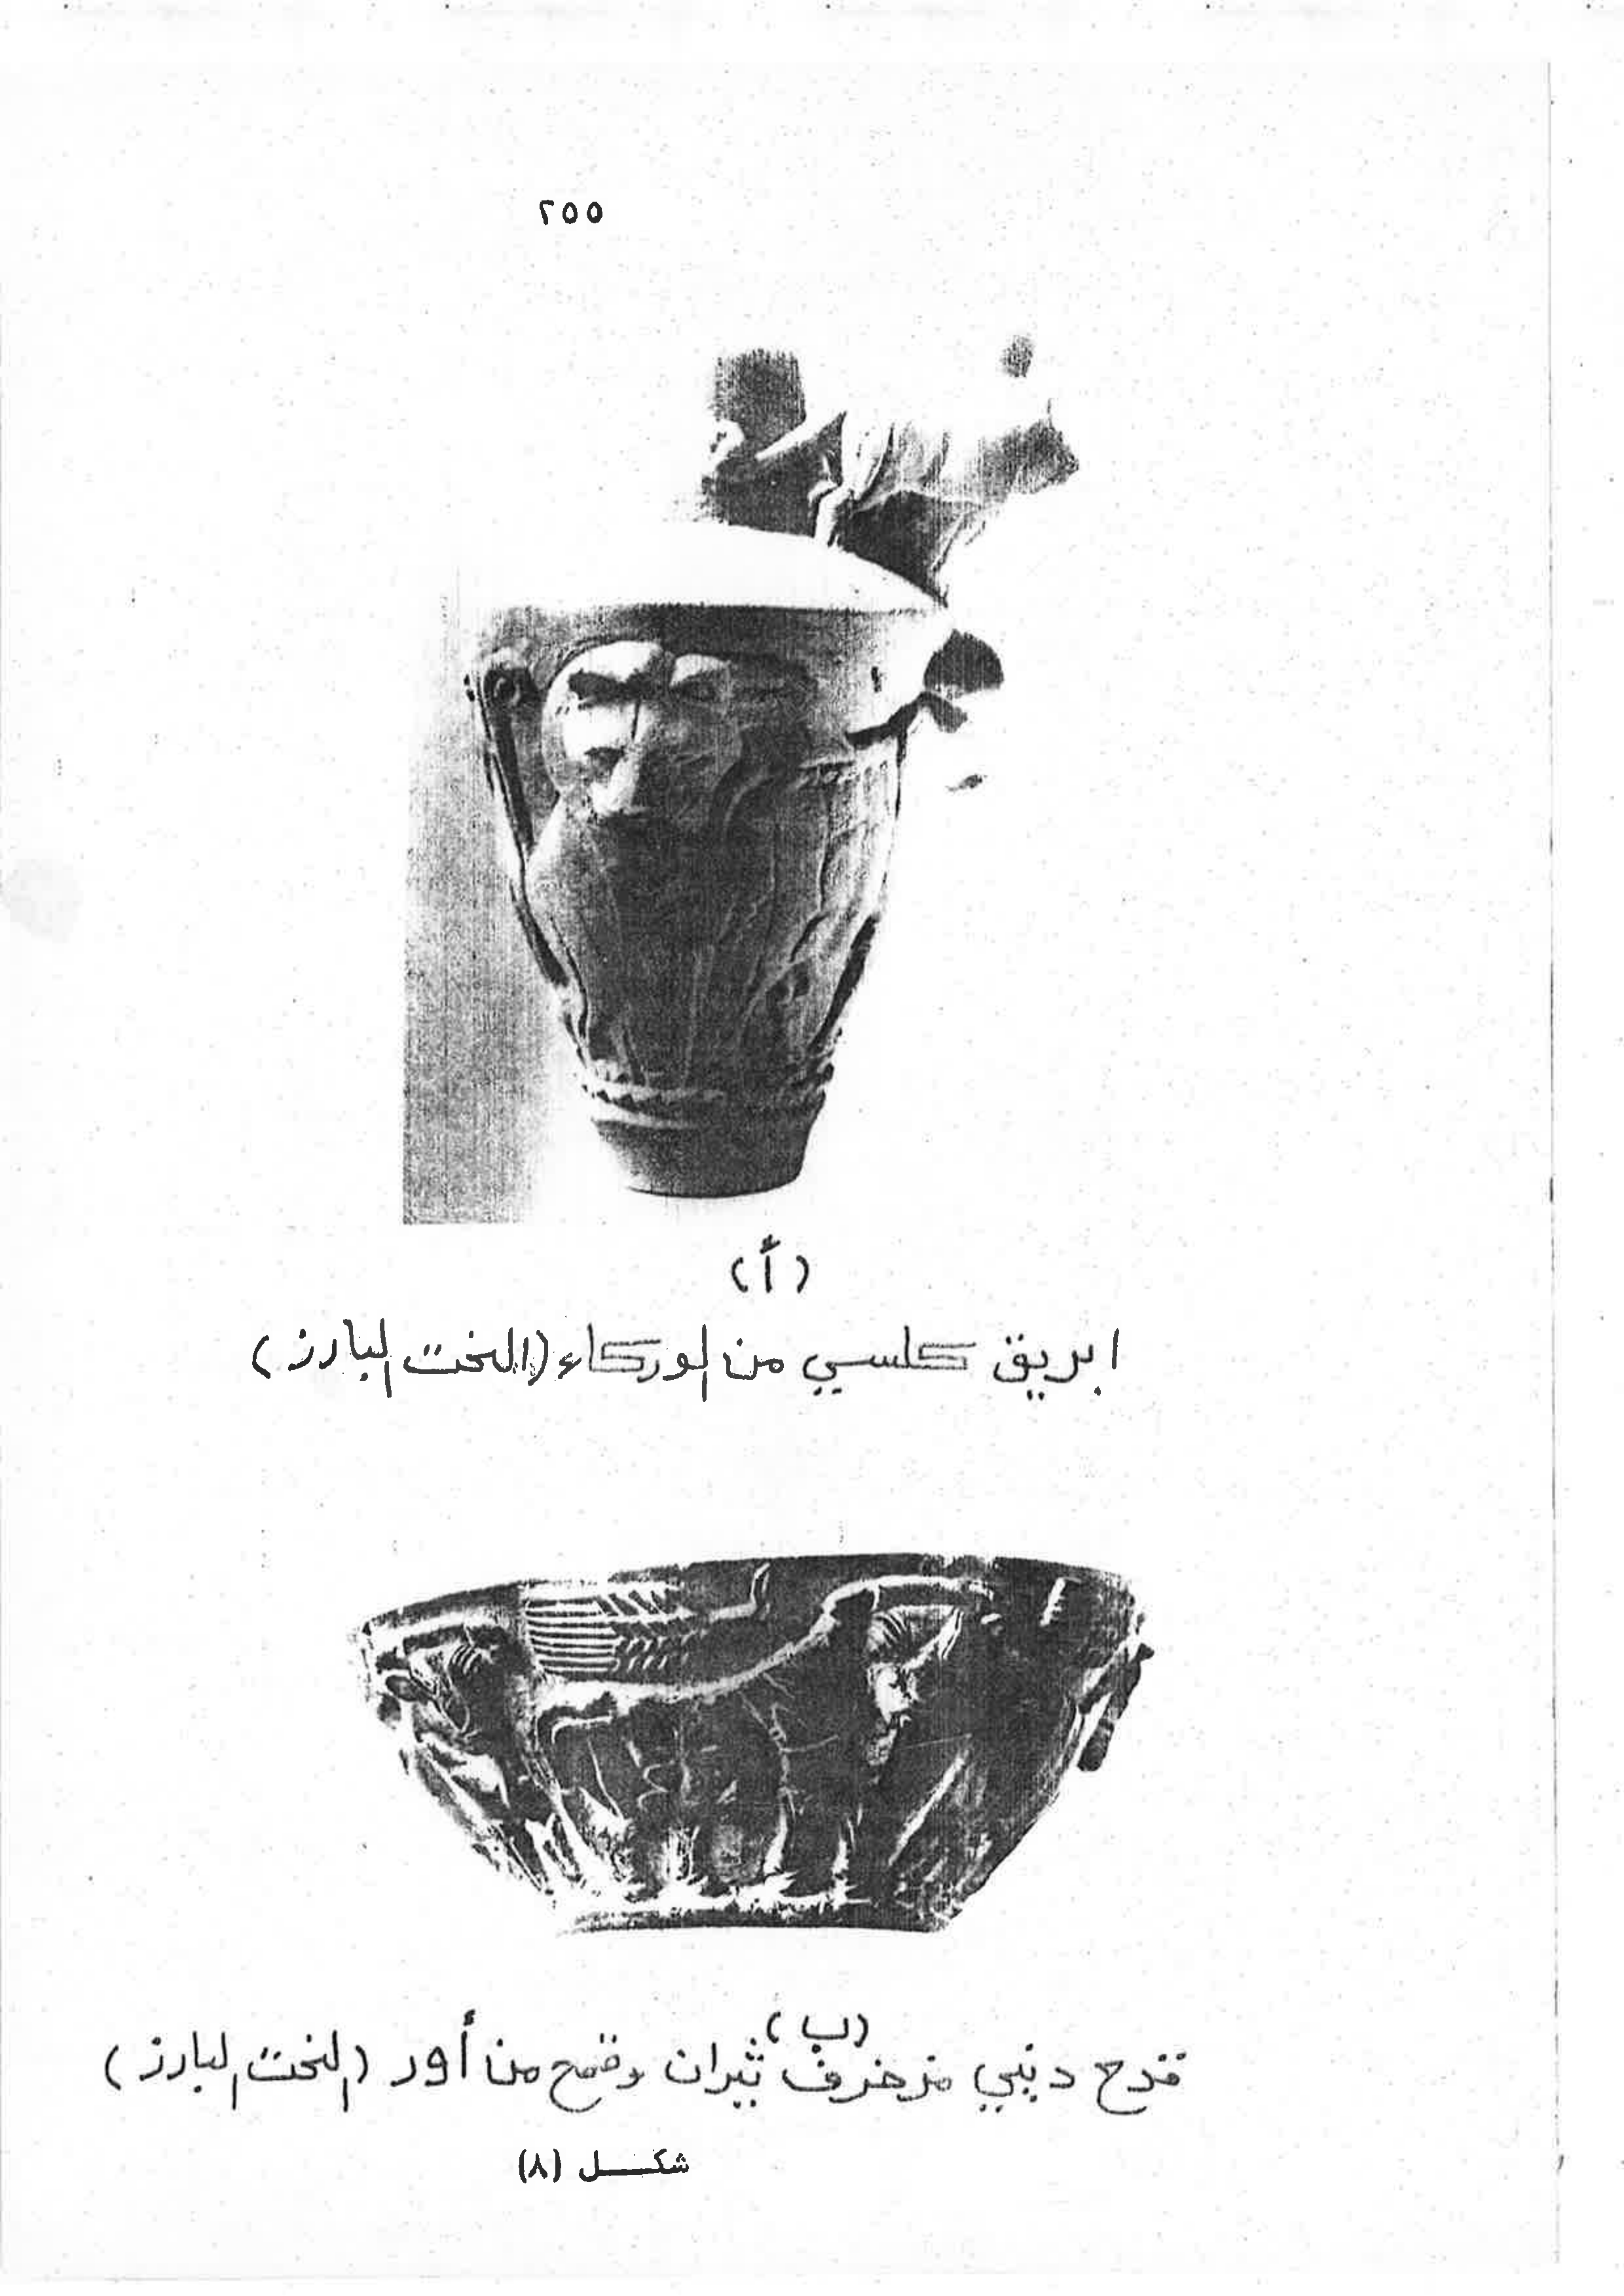 ٢٥٥
(أ)
ابريق كلسي من الوركاء (النحت البارز)
(ب)
قدح ديني مزخرف ثيران وقمح من أور (النحت البارز)
شكل (٨)